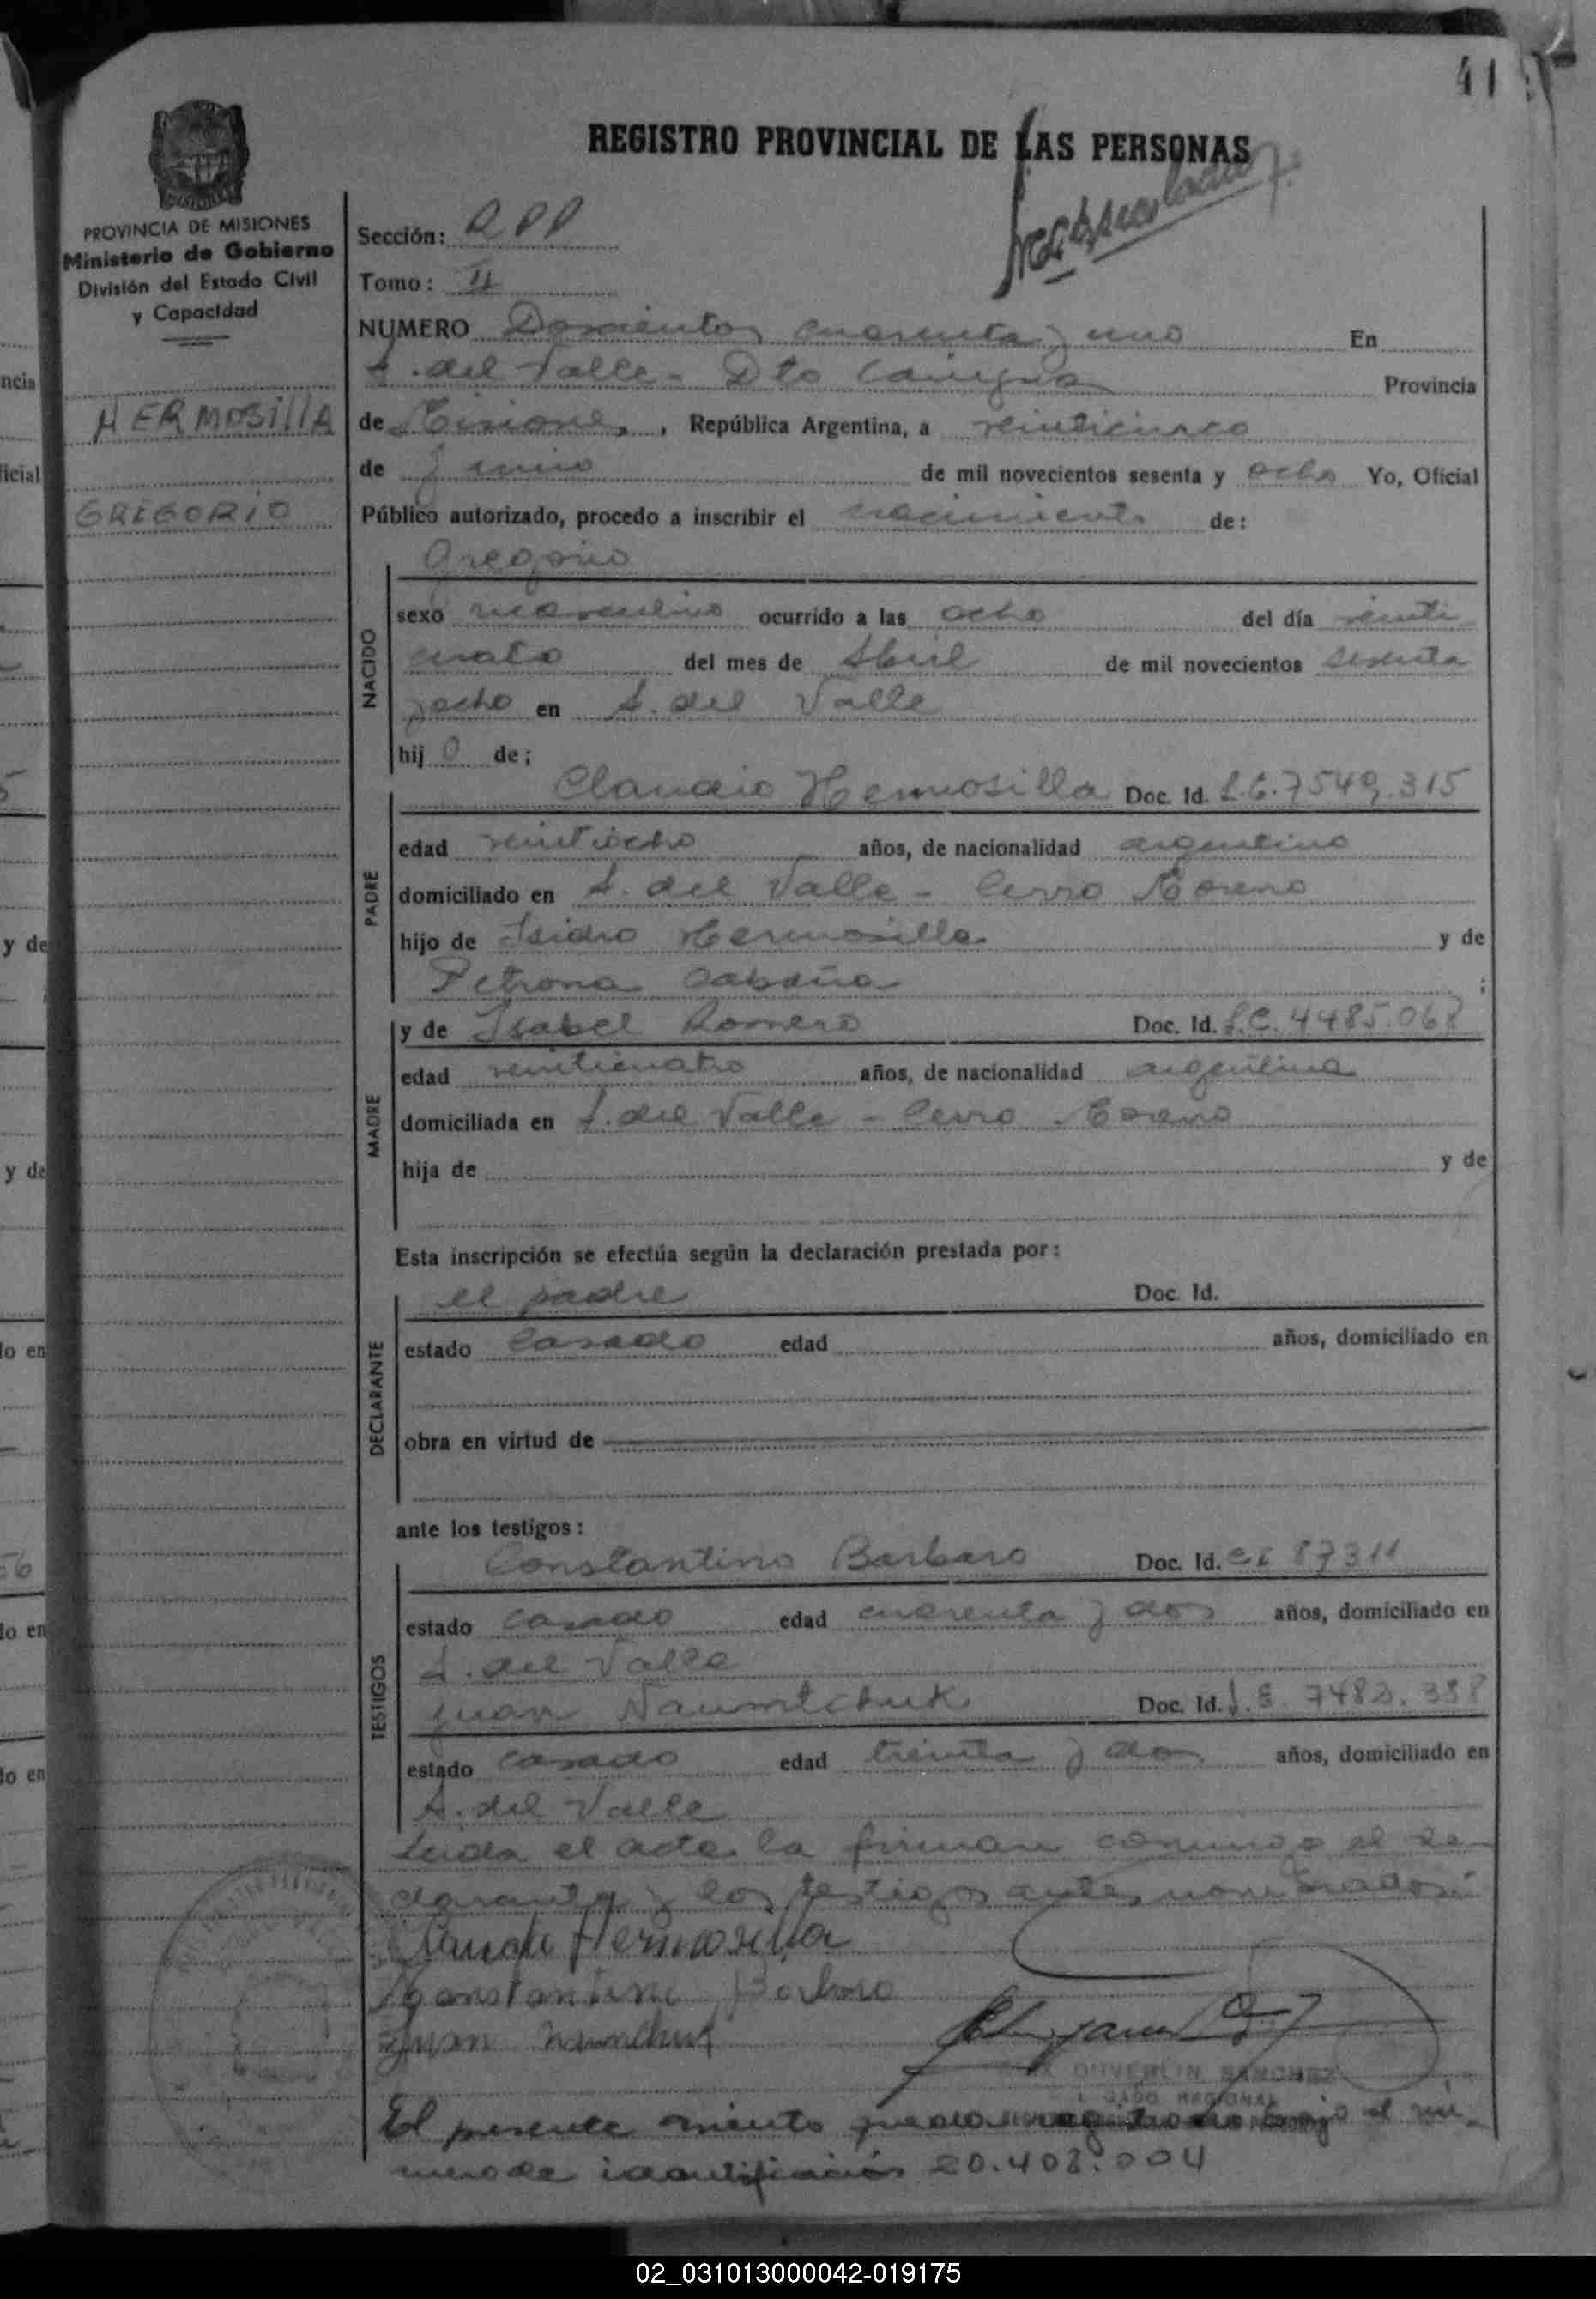 41
REGISTRO PROVINCIAL DE LAS PERSONAS
PROVINCIA DE MISIONES
Ministerio de Gobierno
División del Estado Civil
y Capacidad
HERMOSILLA
GREGORIO
Sección: RPP
Tomo: II
NUMERO Doscientos cuarenta y uno En
A. del Valle - Dto Cainguas Provincia
de Misiones, República Argentina, a veinticinco
de Junio de mil novecientos sesenta y ocho Yo, Oficial
Público autorizado, procedo a inscribir el nacimiento de:
Gregorio
NACIDO
sexo masculino ocurrido a las ocho del día veinti
cuatro del mes de Abril de mil novecientos sesenta
y ocho en A. del Valle
hijo de;
PADRE
Claudio Hermosilla Doc. Id. L.E. 7549.315
edad veintiocho años, de nacionalidad argentino
domiciliado en A. del Valle - Cerro Moreno
hijo de Isidro Hermosilla y de
Petrona Cabaña ;
MADRE
y de Isabel Romero Doc. Id. L.C. 4485.068
edad veinticuatro años, de nacionalidad argentina
domiciliada en A. del Valle - Cerro Moreno
hija de y de
Esta inscripción se efectúa según la declaración prestada por:
DECLARANTE
el padre Doc. Id.
estado casado edad años, domiciliado en
obra en virtud de
ante los testigos:
TESTIGOS
Constantino Barbaro Doc. Id. CI 87311
estado casado edad cuarenta y dos años, domiciliado en
A. del Valle
Juan Naumtchuk Doc. Id. L.E. 7483.338
estado casado edad treinta y dos años, domiciliado en
A. del Valle
Leida el acta la firman conmigo el de-
clarante y los testigos antes nombrados:
Claudio Hermosilla
Constantino Barbaro
Juan Naumchuk
DUVERLIN SANCHEZ
REGIONAL
El presente asiento queda registrado bajo el nú-
mero de identificación 20.408.004
02_031013000042-019175